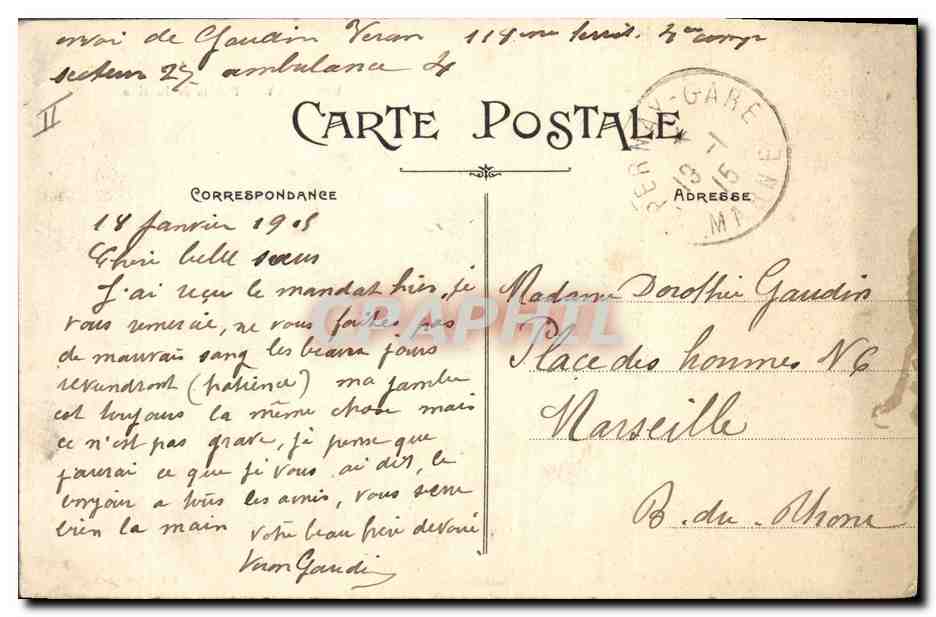 envoi de Gaudin Veran 118eme territ. 4em comp
secteur 27 ambulance 4
II
CARTE POSTALE
EPERNAY-GARE
18 -1
15
MARNE
CORRESPONDANCE
ADRESSE
18 Janvier 1915
Chère belle sœur
J'ai reçu le mandat hier, je
vous remercie, ne vous faites pas
de mauvais sang les beaux jours
reviendront (patience) ma jambe
est toujours la même chose mais
ce n'est pas grave, je pense que
j'aurai ce que je vous ai dit, le
bonjour a tous les amis, vous serre
bien la main
votre beau frère dévoué
Veran Gaudin
Madame Dorothée Gaudin
Place des hommes N 6
Marseille
B. du Rhone
CPAPHIL